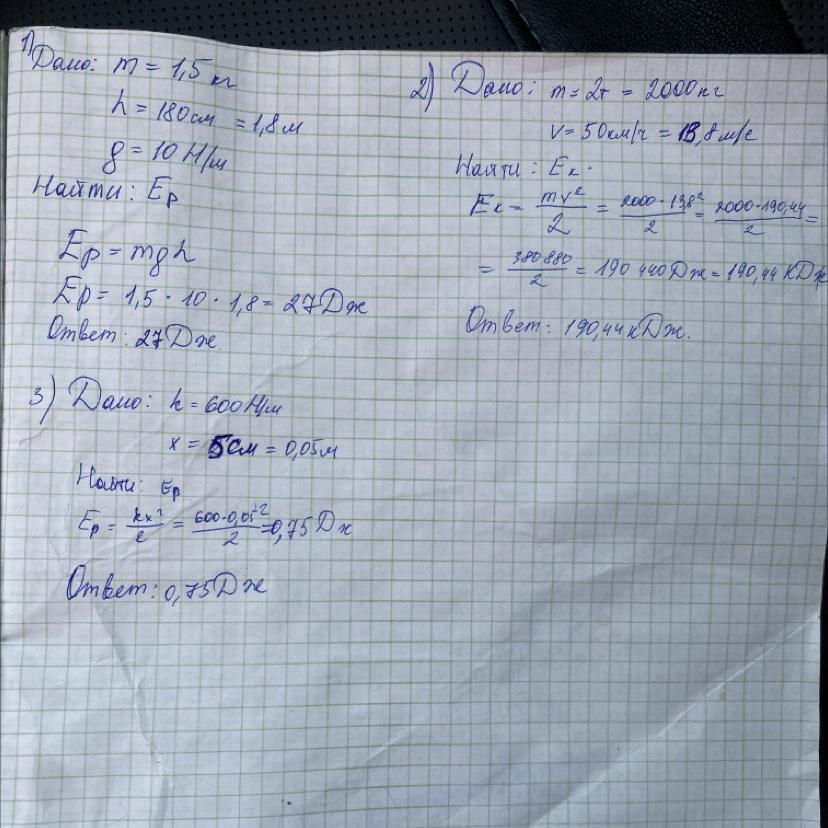 1) Дано: m = 1,5 кг
h = 180 см = 1,8 м
g = 10 Н/м
Найти: Ep
Ep = mgh
Ep = 1,5 · 10 · 1,8 = 27 Дж
Ответ: 27 Дж
2) Дано: m = 2т = 2000 кг
v = 50 км/ч = 13,8 м/с
Найти: Eк.
Eк = mv²/2 = 2000 · 13,8²/2 = 2000 · 190,44/2 =
= 380 880/2 = 190 440 Дж = 190,44 кДж
Ответ: 190,44 кДж.
3) Дано: k = 600 Н/м
x = 5 см = 0,05 м
Найти: Ep
Ep = kx²/2 = 600 · 0,05²/2 = 0,75 Дж
Ответ: 0,75 Дж